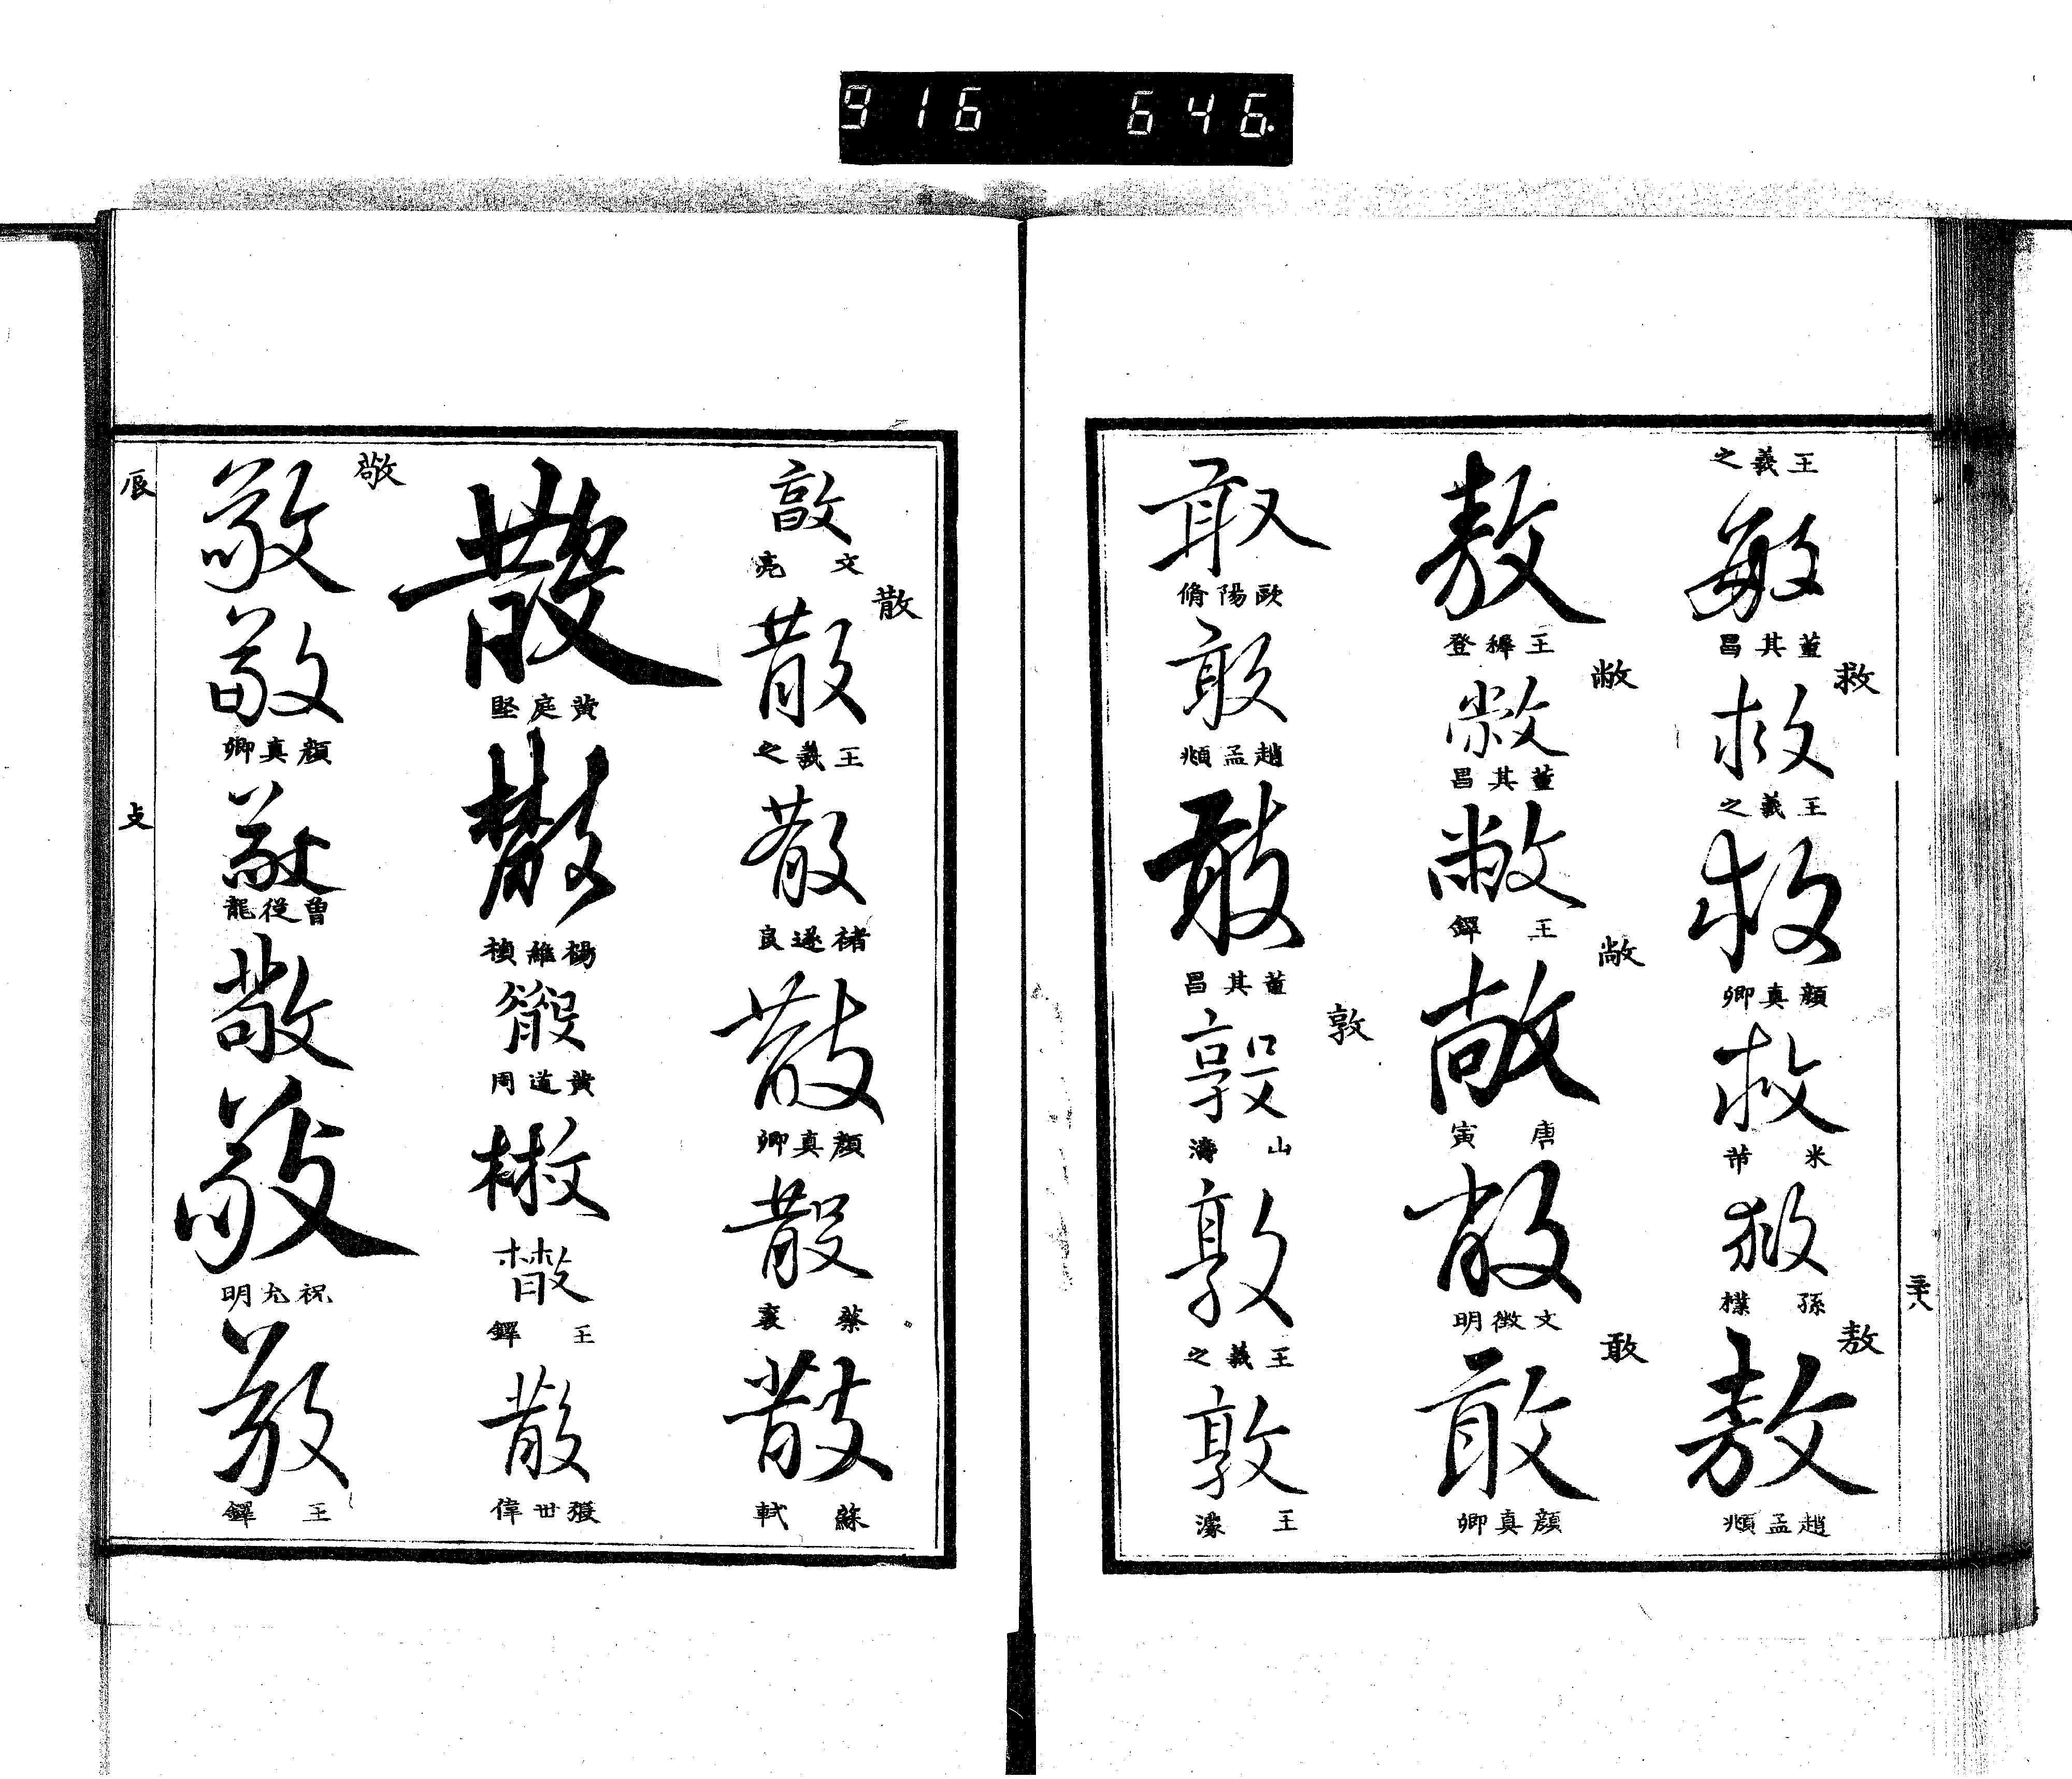 916 646.
王羲之
敏
董其昌
救
救
王羲之
救
顏真卿
救
米芾
救
孫樸
敖
敖
趙孟頫
三十八
敖
王穉登
敝
敝
董其昌
敝
王鐸
敞
敞
唐寅
敞
文徵明
敢
敢
顏真卿
敢
歐陽脩
敢
趙孟頫
敢
董其昌
敦
敦
山濤
敦
王羲之
敦
王濛
敦
文亮
散
散
王羲之
散
褚遂良
散
顏真卿
散
蔡襄
散
蘇軾
散
黄庭堅
散
楊維楨
散
黄道周
散
散
王鐸
散
張世偉
敬
敬
敬
顏真卿
敬
曾從龍
敬
敬
祝允明
敬
王鐸
辰
攴